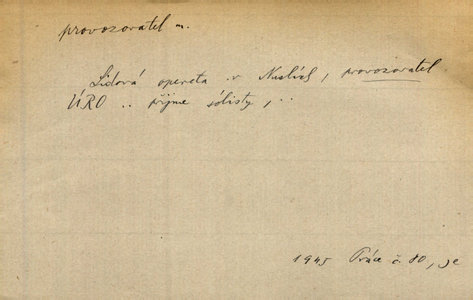 provozovatel m.
Lidová opereta v Nuslích, provozovatel
ÚRO .. přijme sólisty, ..
1945 Práce č. 80,